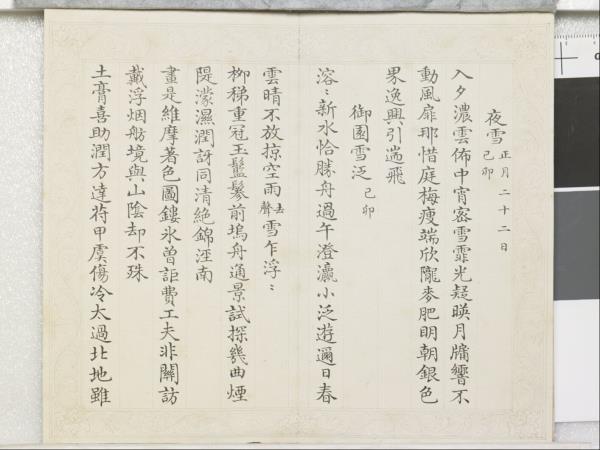 夜雪 己卯 正月二十二日
入夕濃雲佈中宵密雪霏光疑暎月牖響不
動風扉那惜庭梅瘦端欣隴麥肥明朝銀色
界逸興引遄飛
御園雪泛 己卯
溶〻新水恰勝舟過午澄瀛小泛遊邇日春
雲晴不放掠空雨去聲雪乍浮〻
柳稊重冠玉鬅鬖前塢舟通景試探幾曲煙
隄濛濕潤訝同清絶錦淫南
畫是維摩著色圖鏤氷曽詎費工夫非關訪
戴浮烟舫境與山陰却不殊
土膏喜助潤方達荇甲虞傷冷太過北地雖